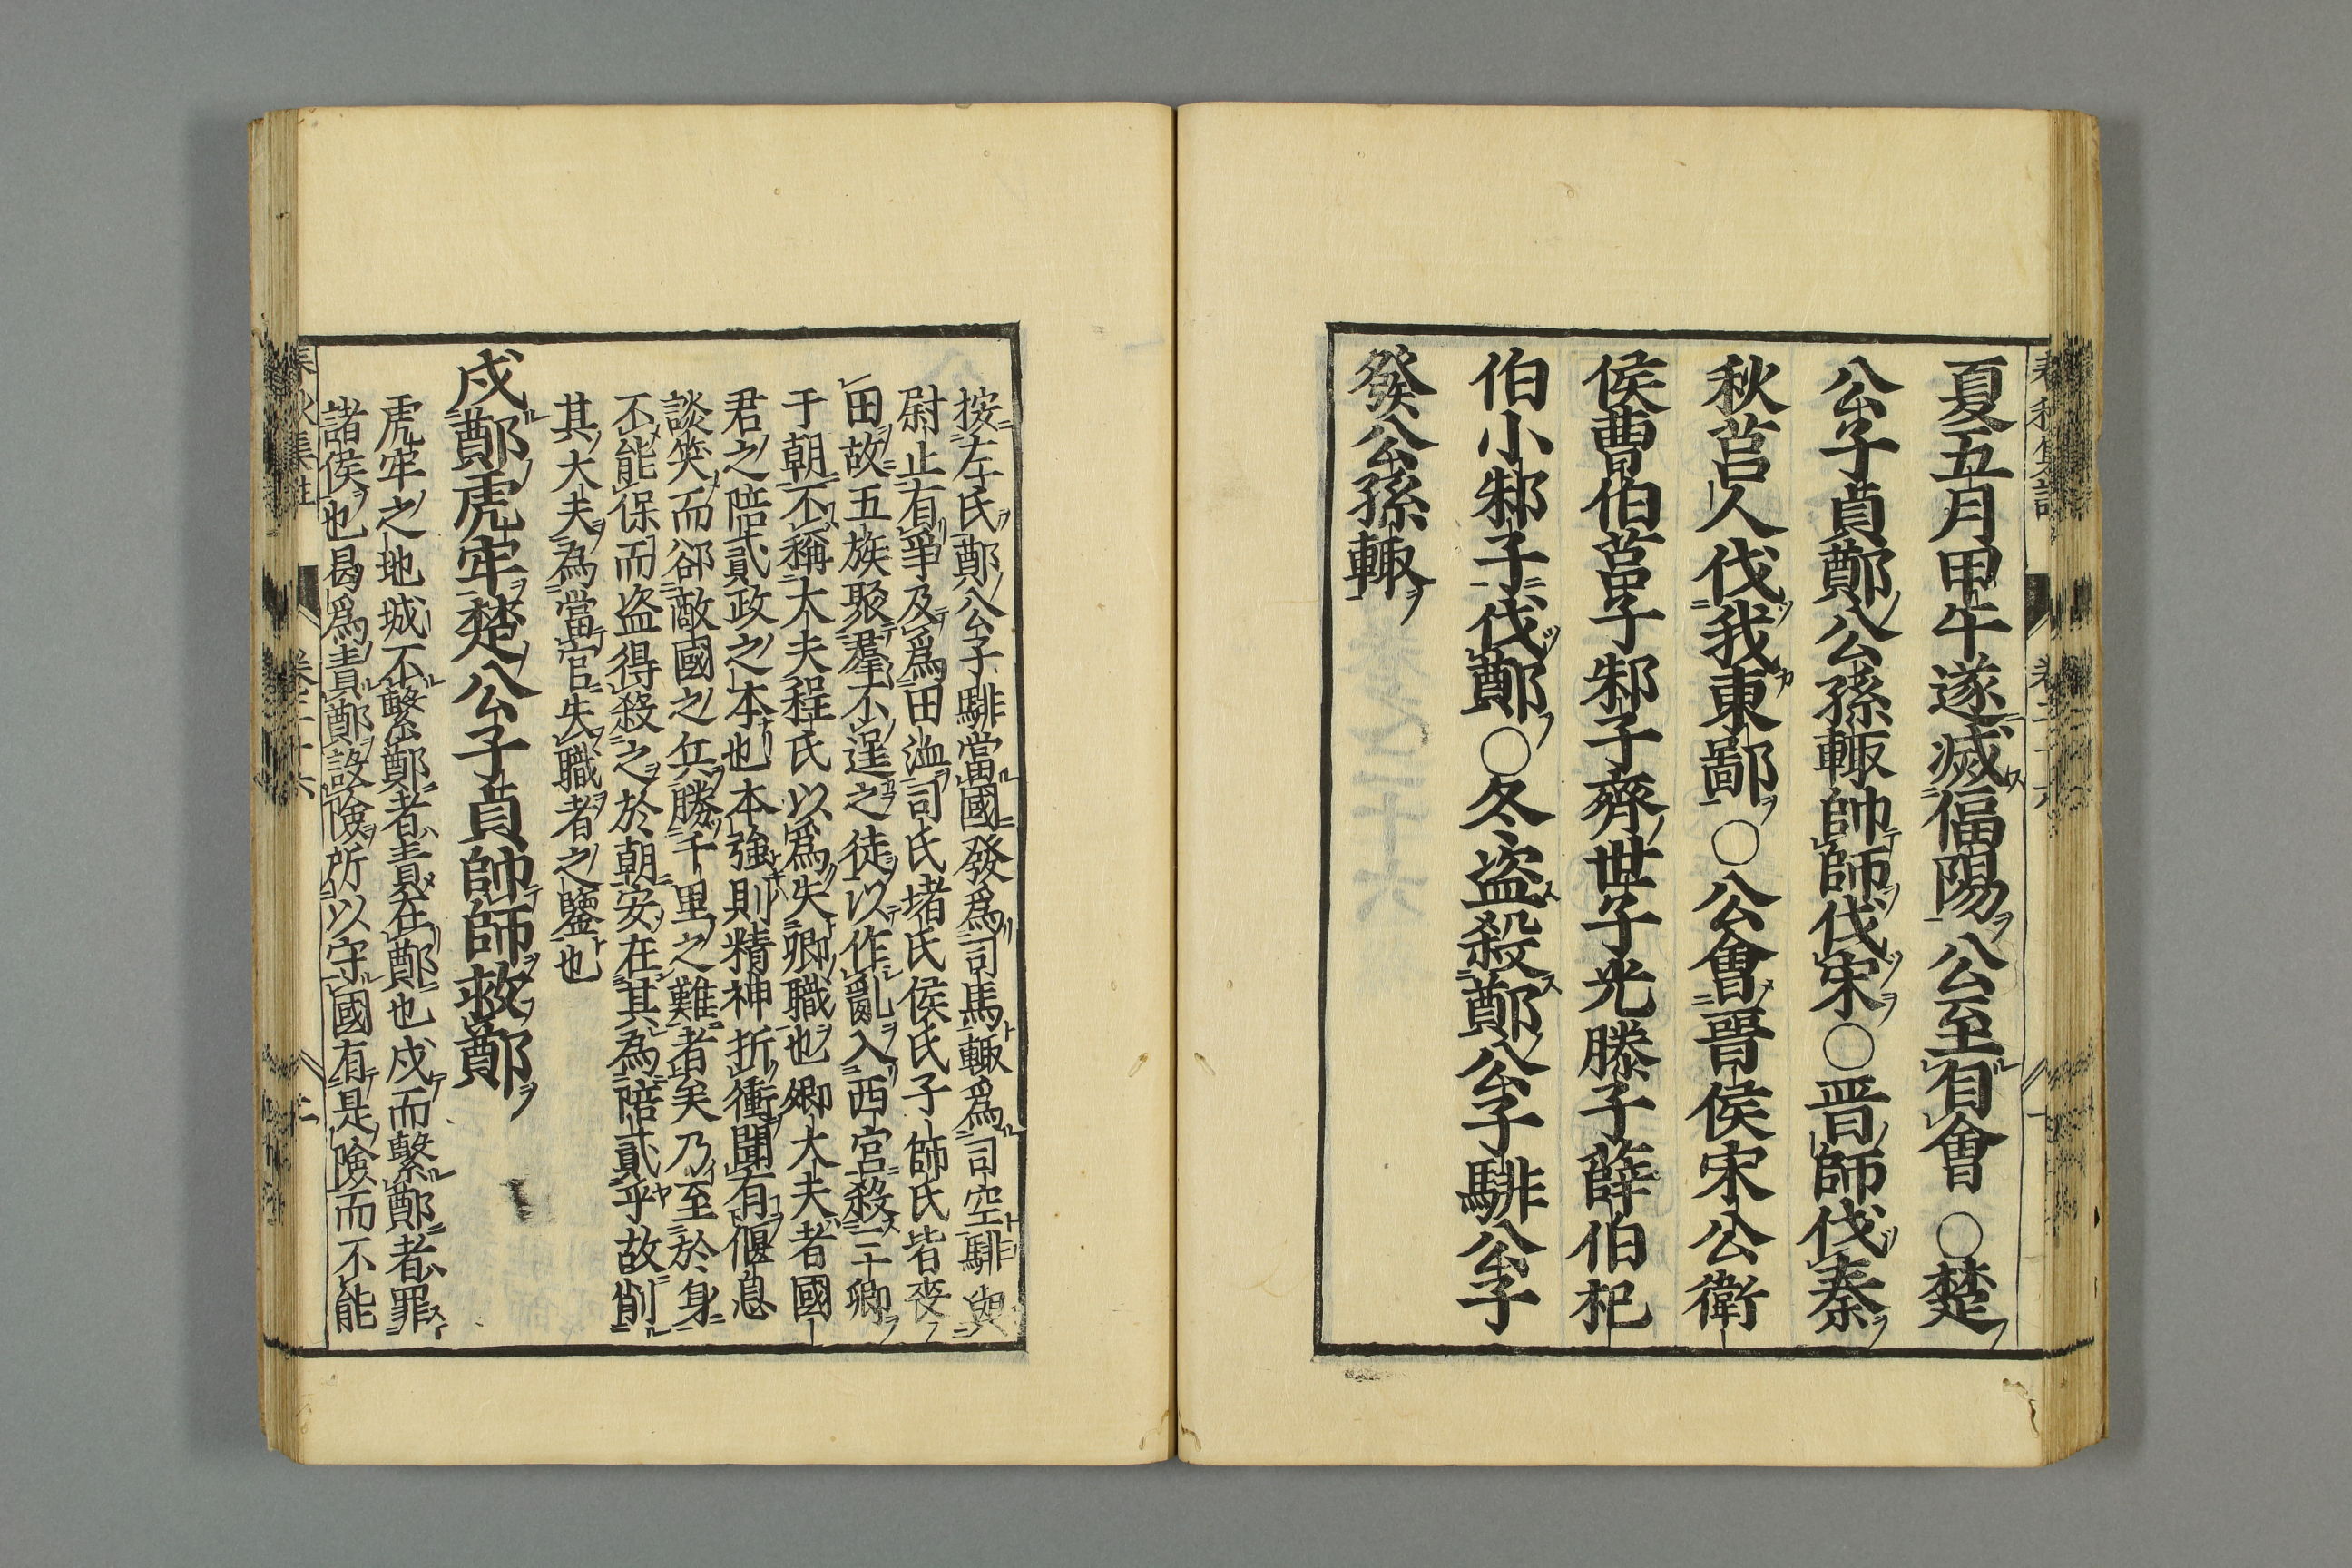 夏五月甲午遂滅偪陽公至自會○楚
公子貞鄭公孫輙帥師伐宋○晋師伐秦
秋莒人伐我東鄙○公會晋侯宋公衛
侯曹伯莒子邾子齊世子光滕子薛伯杞
伯小邾子伐鄭○冬盗殺鄭公子騑公子
發公孫輙
按左氏鄭公子騑當國發爲司馬輙爲司空騑與
尉止有爭及爲田洫司氏堵氏侯氏子師氏皆喪
田故五族聚羣不逞之徒以作亂入西宮殺三卿
于朝不稱大夫程氏以爲失卿職也卿大夫者國
君之陪貳政之本也本強則精神折衝聞有偃息
談笑而卻敵國之兵勝千里之難者矣乃至於身
不能保而盗得殺之於朝安在其為陪貳乎故削
其大夫為當官失職者之鑒也
戍鄭虎牢楚公子貞帥師救鄭
虎牢之地城不繋鄭者責在鄭也戍而繋鄭者罪
諸侯也曷爲責鄭設險所以守國有是險而不能
春秋集註 卷二十六